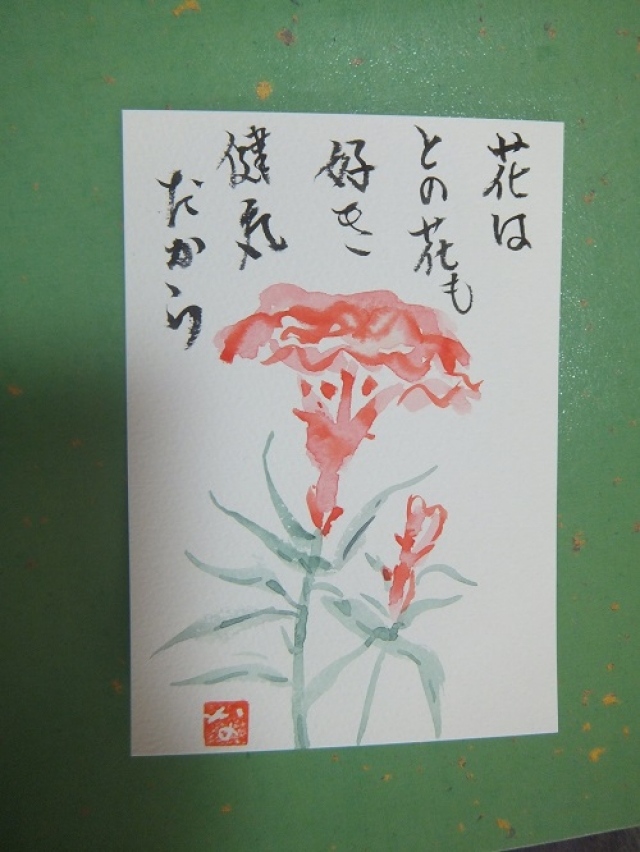 花は
との花も
好き
健気
だから